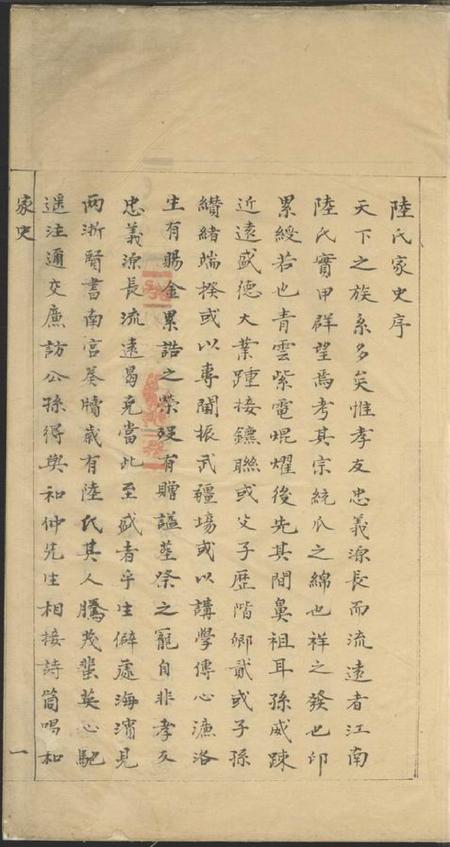 陸氏家史序
天下之族系多矣惟孝友忠義源長而流遠者江南
陸氏實甲群望焉考其宗統瓜之綿也祥之發也印
累綬若也青雲紫電焜耀後先其間鼻祖耳孫威踈
近遠盛德大業踵接鑣聯或父子歷階卿貳或子孫
纘緒端揆或以專閫振武疆埸或以講學傳心濂洛
生有賜金累誥之榮歿有贈謚塋祭之寵自非孝友
忠義源長流遠曷克當此至盛者乎生僻處海濱見
两浙賢書南宮奏牘歲有陸氏其人騰茂蜚英心馳
遥注邇交廉訪公孫得與和仲先生相接詩筒唱和
家史
一